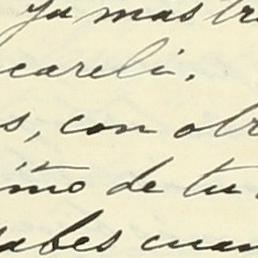 ya mas tr
careli.
s, con otr
imo de tu
sabes cuan